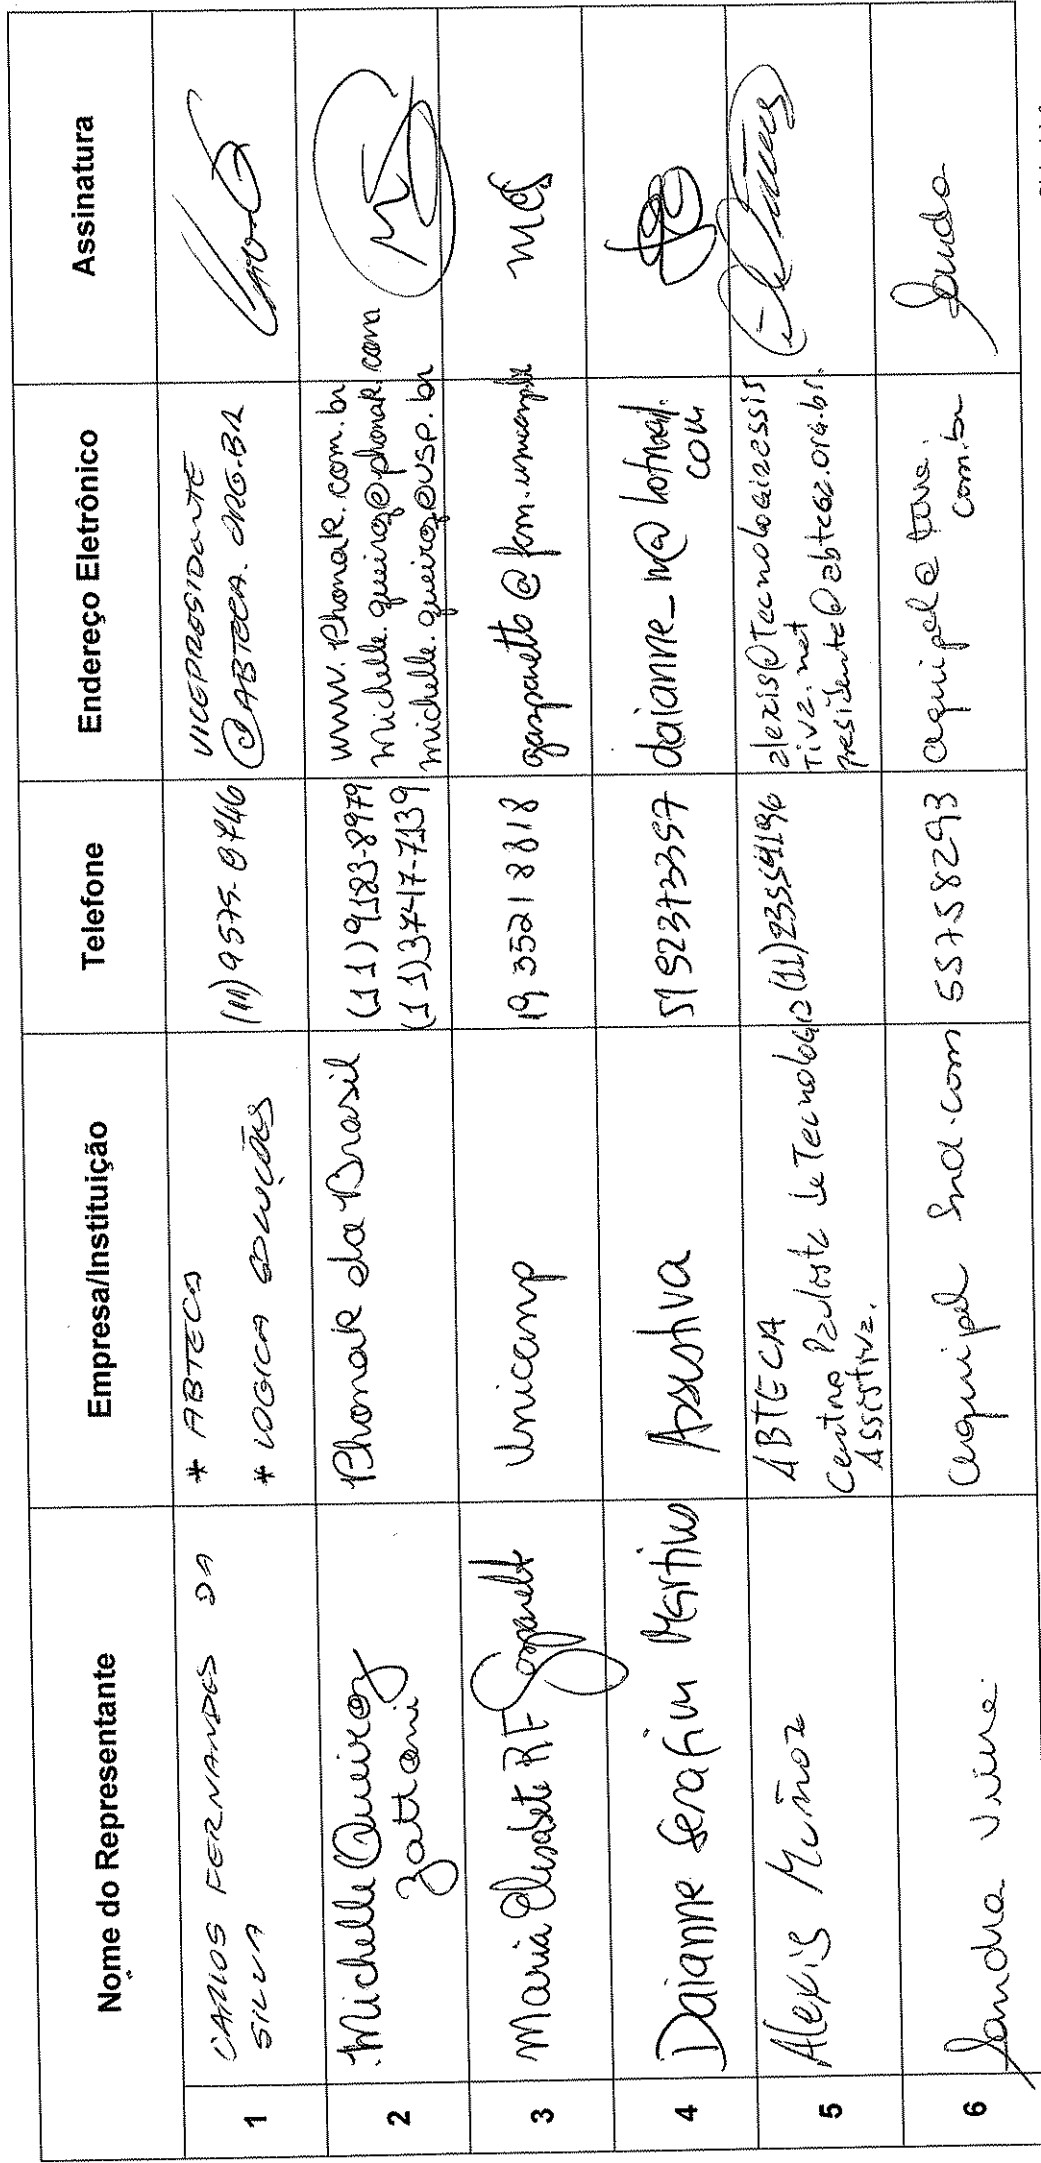 Nome do Representante Empresa/Instituição Telefone Endereço Eletrônico Assinatura
1 CARLOS FERNANDES DA SILVA * ABTECA * LOGICA SOLUÇÕES (11) 9575-8746 VICEPRESIDENTE @ABTECA.ORG.BR
2 Michelle Queiroz Zattoni Phonak do Brasil (11) 9183-8979 (11) 3747-7139 www.Phonak.com.br michelle.queiroz@phonak.com michelle.queiroz@usp.br
3 Maria Elisabete RF Gasparetto Unicamp 19 35218818 gasparetto@fcm.unicamp.br
4 Daianne Serafim Martins Assistiva daianne_m@hotmail.com
5 Alexis Muñoz ABTECA Centro Paulista de Tecnologia Assistiva. alexis@Tecnologiaassistiva.net presidente@abteca.org.br.
6 Sandra 55758293 com.br Sandra